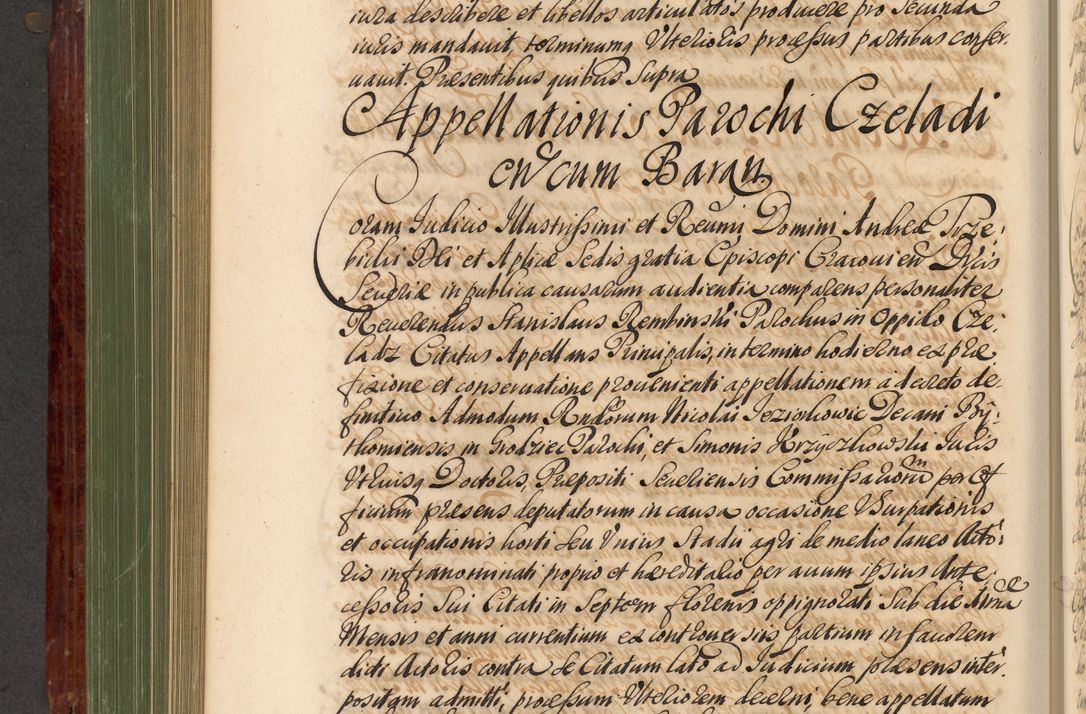 iura describere et libellos articulatos producere pro secunda
iuris mandauit, terminumq Vlterioris processus partibus conser:
uauit. Præsentibus quibus supra
Appellationis Parochi Czeladi
en cum Baran
Coram Iudicio Illustrissimi et Reumi Domini Andreæ Trze:
bicki Dei et Aplicæ Sedis gratia Episcopi Cracouien Ducis
Seueriæ in publica causarum audientia comparens personaliter
Reuerendus Stanislaus Rembinski Parochus in Oppido Cze:
ladz Citatus Appellans Principalis, in termino hodierno ex præ
fixione et conseruatione prouenienti appellationem a decreto de:
finitiuo Admodum Rndorum Nicolai Ieziorkowic Decani By:
thomiensis in Grodziec Parochi, et Simonis Krzyczkowski Iuris
Vtriusq Doctoris, Præpositi Seueriensis Commissariorum per Of
ficium præsens deputatorum in causa occasione Vsurpationis
et occupationis horti seu Vnius Stadii agri de medio laneo Acto:
ris infranominati proprio et hæreditario per auum ipsius Ante
cessoris Sui Citati in Septem florenis oppignorati Sub die
Mensis et anni currentium ex controuersiis partium in fauorem
dicti Actoris contra se Citatum lato ad Iudicium præsens inter:
positam admitti, processum Vlteriorem decerni, bene appellatum